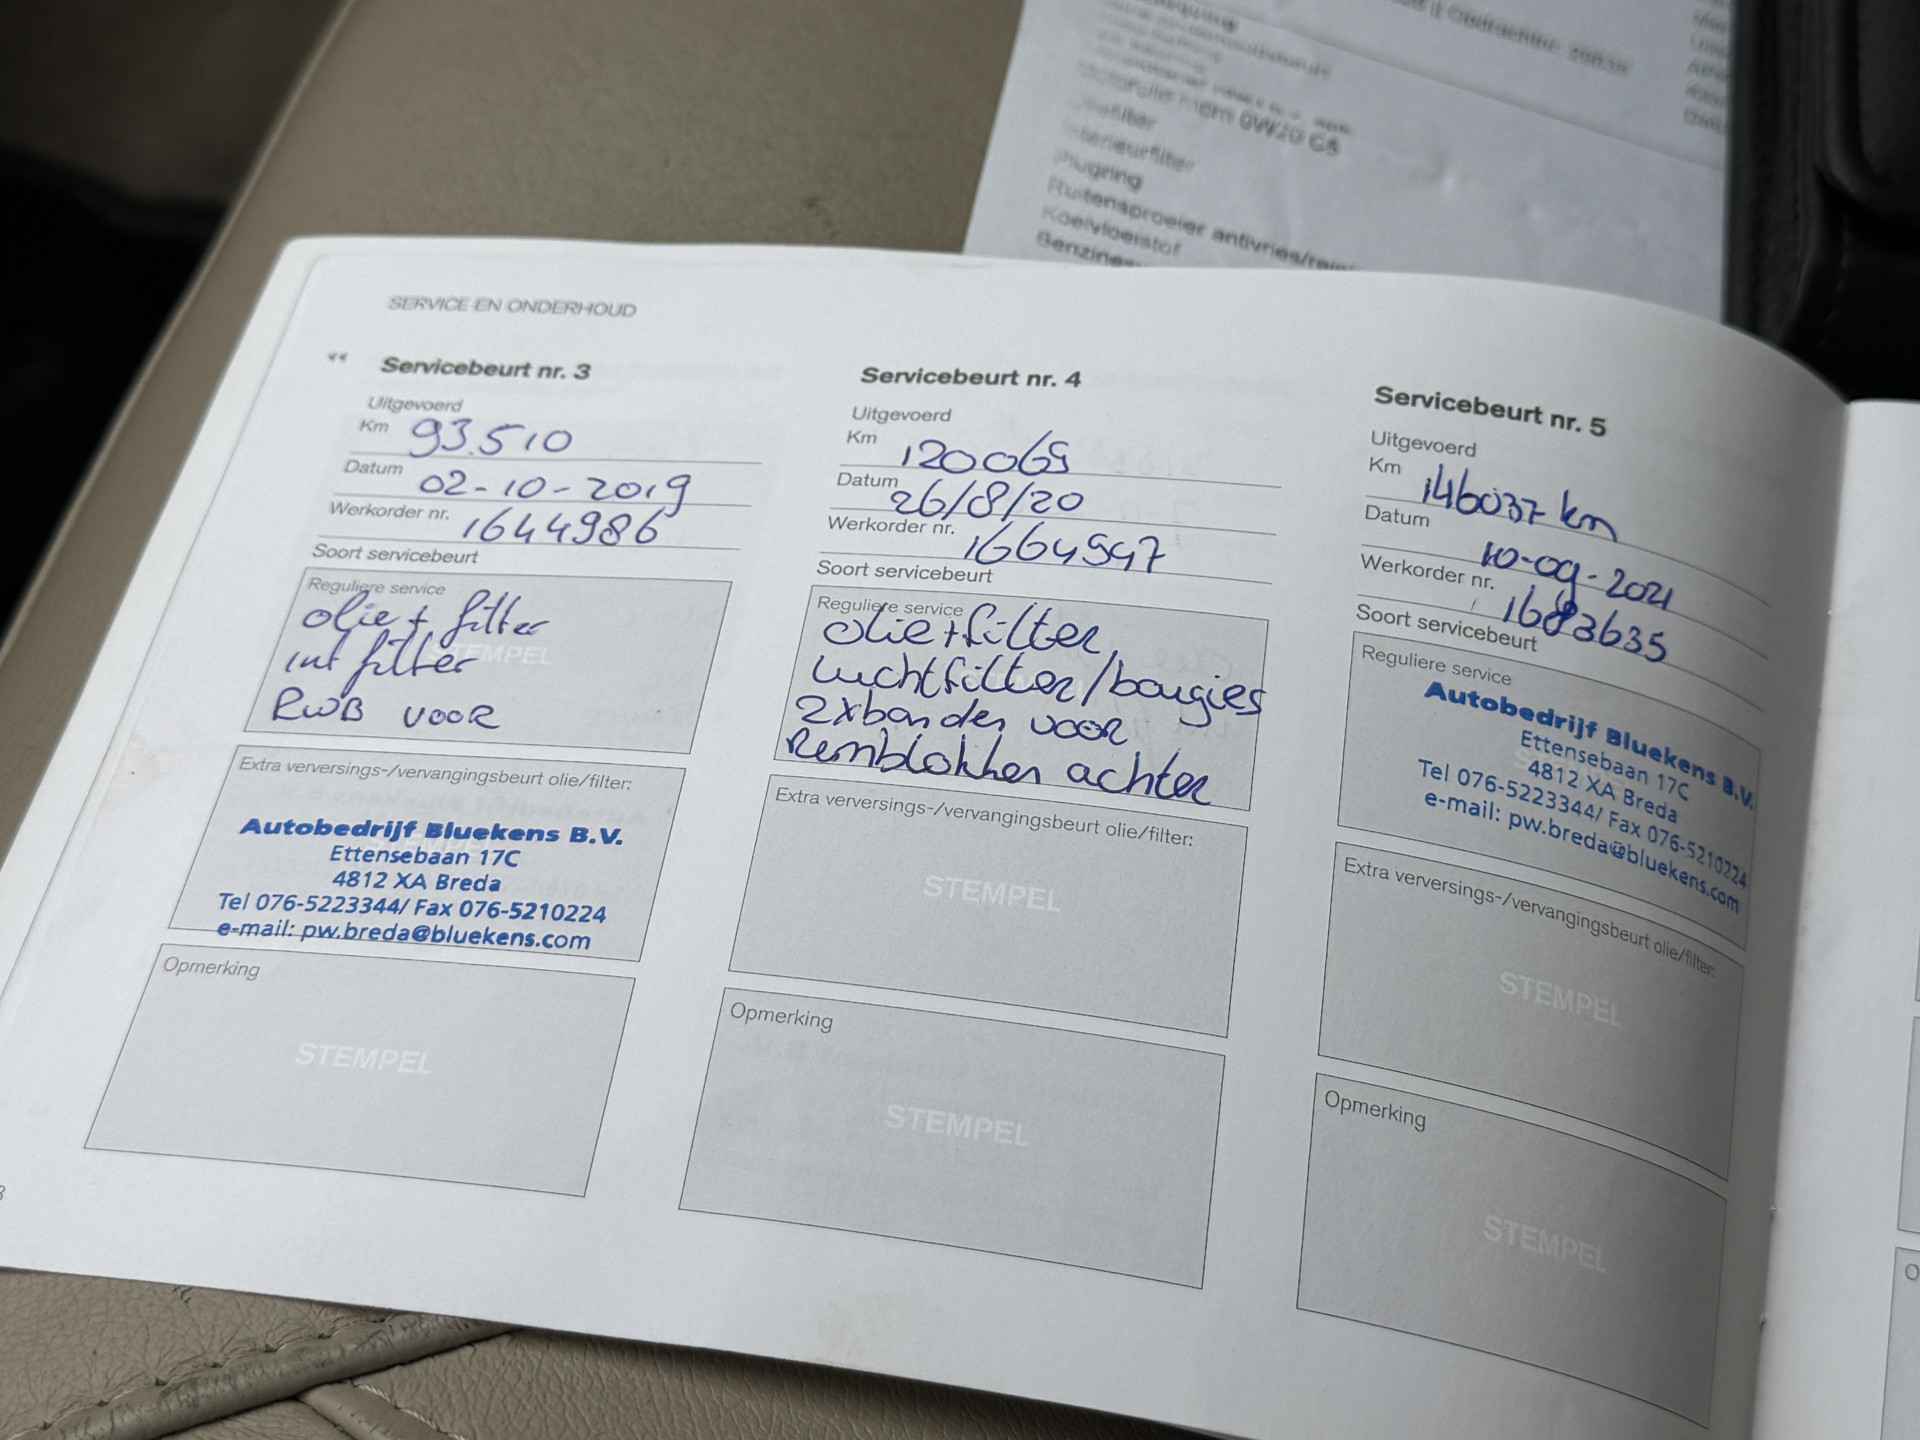 0W20 C5
Plugring
Ruitensproeier antivries/
Koelvloeistof
SERVICE EN ONDERHOUD
Servicebeurt nr. 3
Uitgevoerd
Km 93.510
Datum 02-10-2019
Werkorder nr. 1644986
Soort servicebeurt
Reguliere service
olie + filter
int filter
RWB VOOR
STEMPEL
Extra verversings-/vervangingsbeurt olie/filter:
Autobedrijf Bluekens B.V.
Ettensebaan 17C
4812 XA Breda
Tel 076-5223344/ Fax 076-5210224
e-mail: pw.breda@bluekens.com
Opmerking
STEMPEL
Servicebeurt nr. 4
Uitgevoerd
Km 120069
Datum 26/8/20
Werkorder nr. 1664947
Soort servicebeurt
Reguliere service
olie+filter
luchtfilter/bougies
2xbanden voor
Remblokken achter
Extra verversings-/vervangingsbeurt olie/filter:
STEMPEL
Opmerking
STEMPEL
Servicebeurt nr. 5
Uitgevoerd
Km 146037 km
Datum 10-09-2021
Werkorder nr. 1683635
Soort servicebeurt
Reguliere service
Autobedrijf Bluekens B.V.
Ettensebaan 17C
4812 XA Breda
Tel 076-5223344/ Fax 076-5210224
e-mail: pw.breda@bluekens.com
Extra verversings-/vervangingsbeurt olie/filter:
STEMPEL
Opmerking
STEMPEL